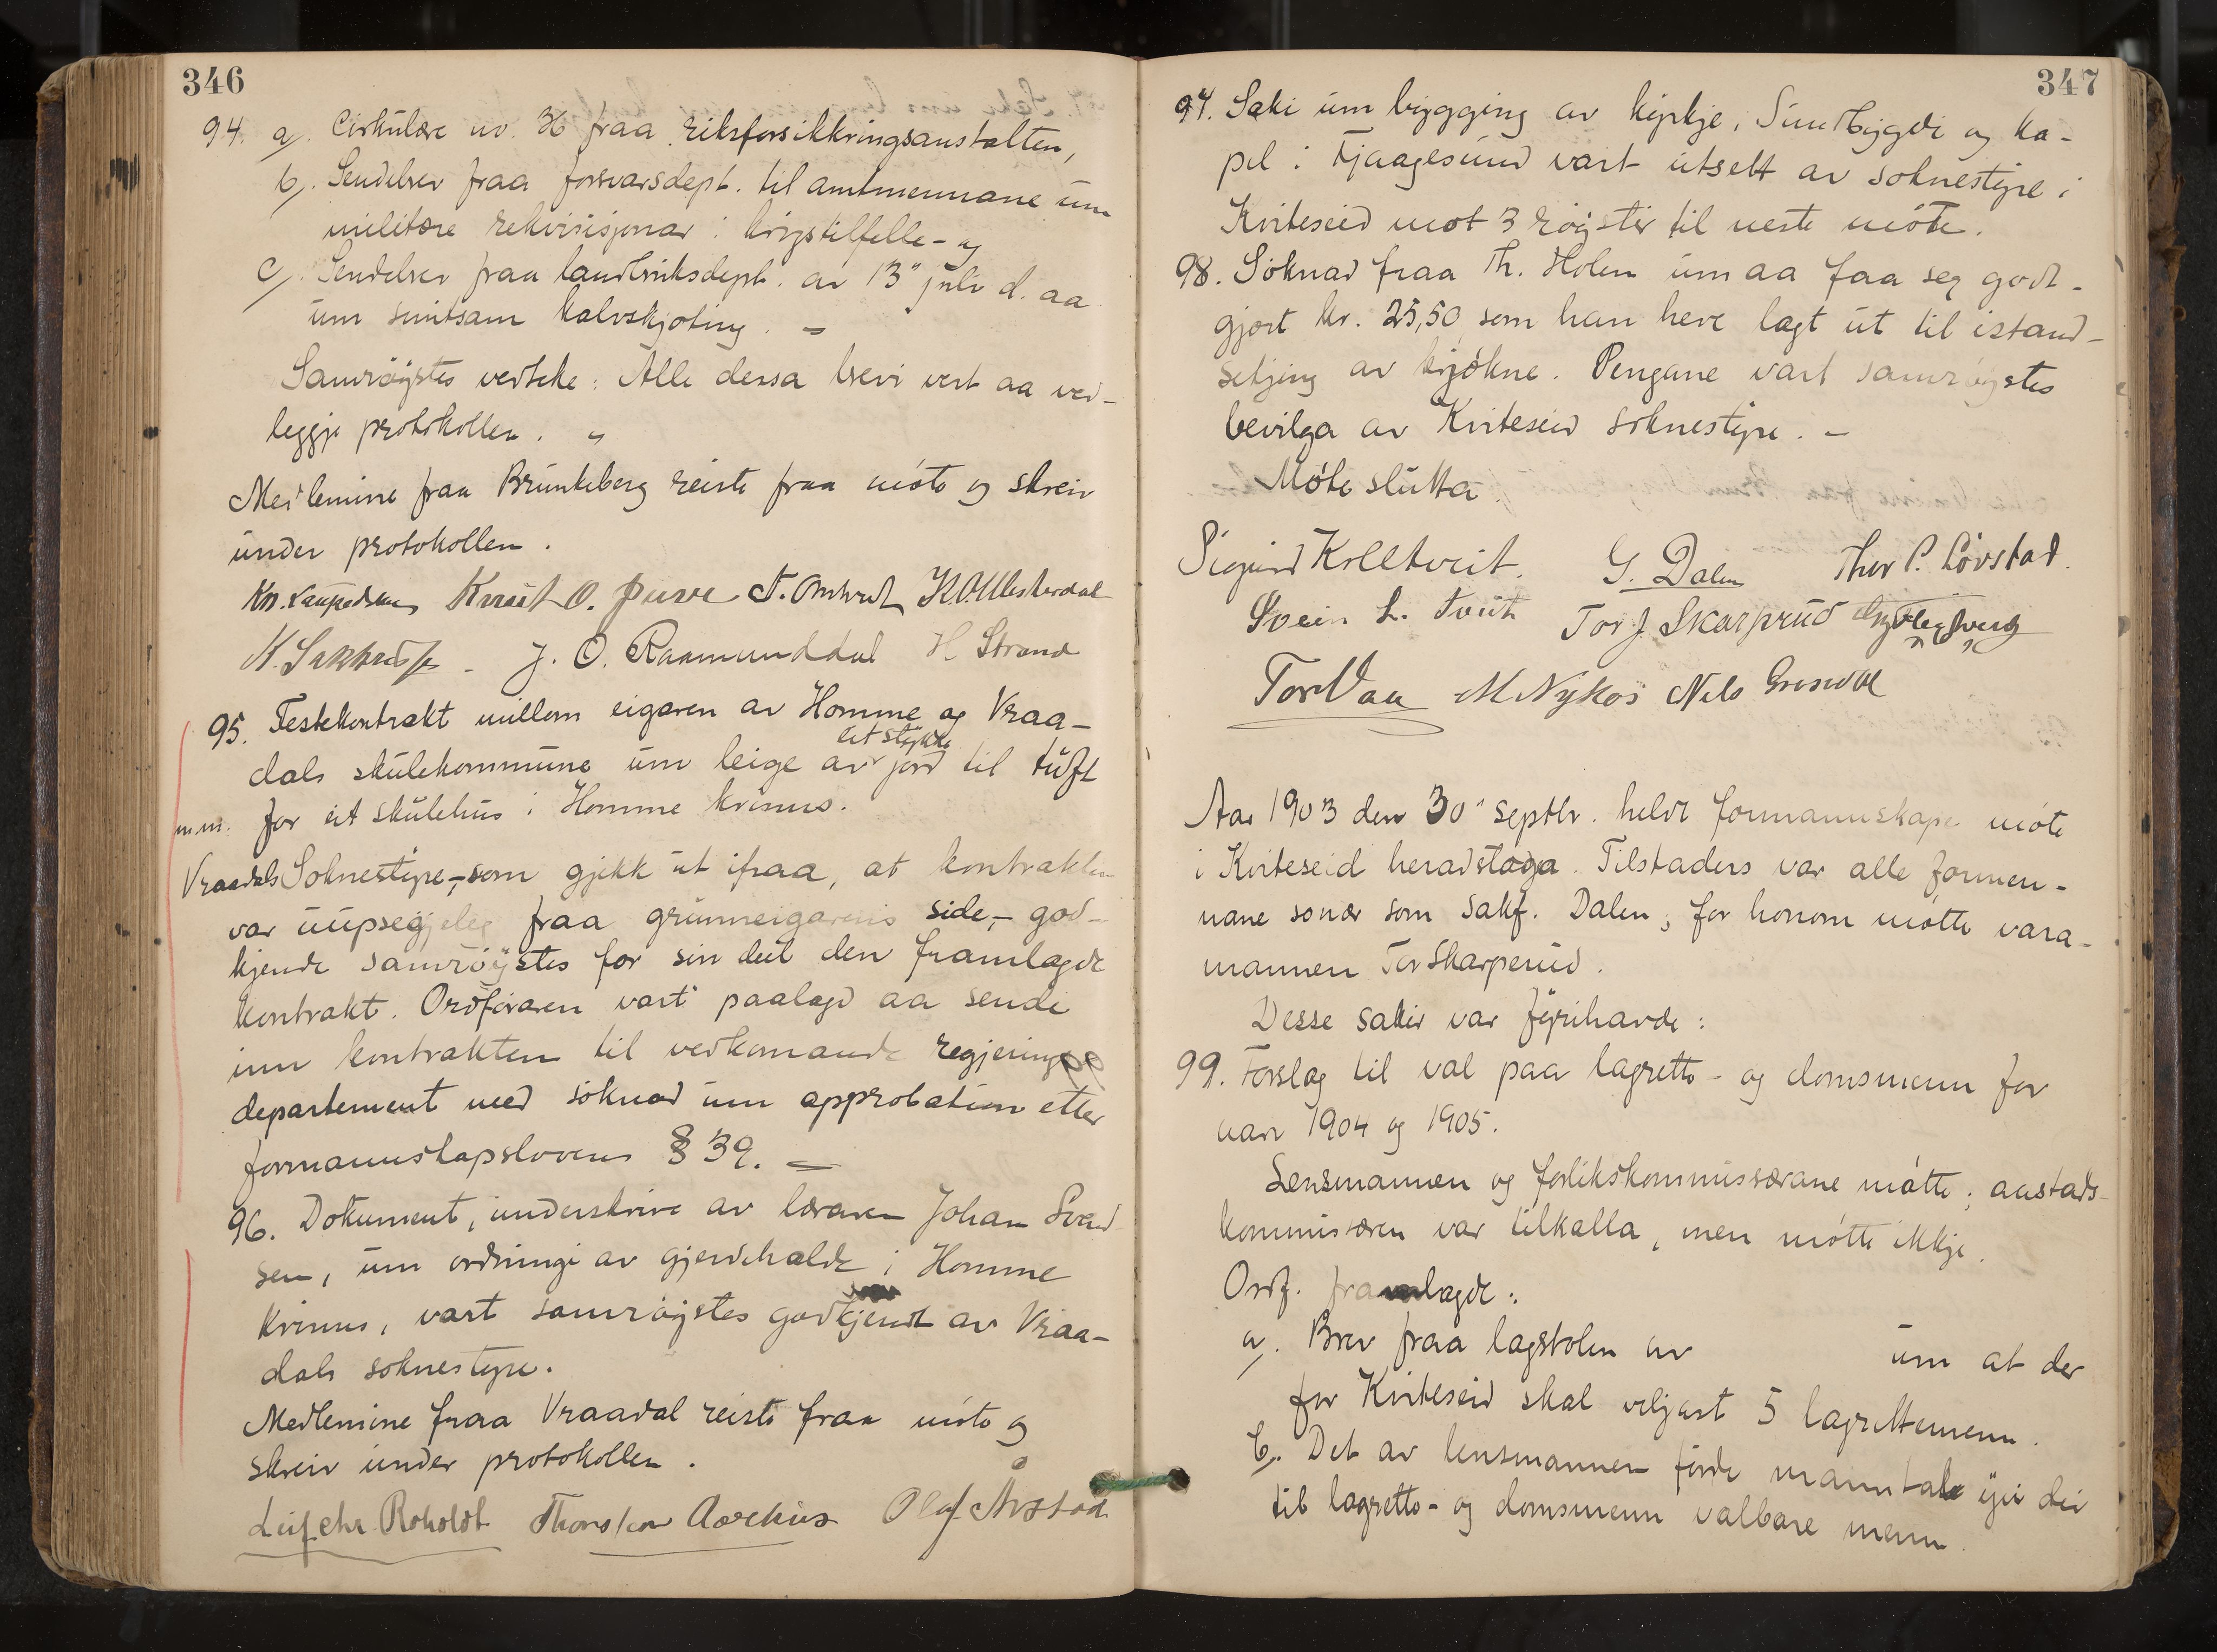 346
94. a). Cirkulære no. 36 fraa riksforsikkringsanstalten,
b). Sendelser fraa forsvarsdept. til amtmennane um
militære rekvisisjonar i krigstilfelle - og
c). Sendelser fraa landbruksdept. av 13" juli d. aa
um smitsam kalvskjøting. -
Samrøystes vedteke: Alle dessa brevi vert aa ved-
leggje protokollen. -
Medlemine fraa Brunkeberg reiste fraa møte og skreiv
under protokollen.
Knut O. J. O. Raamunddal H Strand
95. Festekontrakt millom eigaren av Homme og Vraa-
eit stykke
dals skulekommune um leige av jord til tuft
m.m. for eit skulehus i Homme krinns.
Vraadals Soknestyre, - som gjekk ut ifraa, at kontrakten
var uupsegjeleg fraa grunneigarens side, - god-
kjende samrøystes for sin deil den framlagde
kontrakt. Ordføraren vart paalagd aa sende
inn kontrakten til vedkomande regjerings
departement med søknad um approbation etter
formannskapslovens § 39. -
96. Dokument, underskrive av læraren Johan Svend-
sen, um ordningi av gjerdehalde i Homme
krinns, vart samrøystes godkjendt av Vraa-
dals soknestyre.
Medlemine fraa Vraadal reiste fraa møte og
skreiv under protokollen.
Leif Chr. Roholdt Olaf Århstad
347
97. Saki um bygging av kyrkje i Sundbygdi og ka-
pel i Fjaagesund vart utsett av soknestyre i
Kviteseid mot 3 røyster til neste møte.
98. Søknad fraa Th. Holen um aa faa seg godt-
gjort kr. 25,50 som han heve lagt ut til istand-
setjing av kjøkne. Pengane vart samrøystes
bevilga av Kviteseid soknestyre. -
Møte slutta.
Sigurd Kolltveit. G. Dalen Thor P. Lövstad.
Svein L. Tveit Tor J. Skarprud
Tor Vaa M Nykos Nils
Aar 1903 den 30" septbr. heldt formannskape møte
i Kviteseid heradstoga. Tilstaders var alle formen-
nane sonær som sakf. Dalen; for honom møtte vara-
mannen Tor Skarperud.
Desse sakir var fyrihavde:
99. Forslag til val paa lagretto- og domsmenn for
aari 1904 og 1905.
Lensmannen og forlikskommissærane møtte; anstads-
kommissæren var tilkalla, men møtte ikkje.
Ordf. framlagde:
a). Brev fraa lagstolen av um at der
for Kviteseid skal veljast 5 lagrettemenn.
b). Det av lensmannen førde manntale yvi dei
til lagretto- og domsmenn valbare menn.